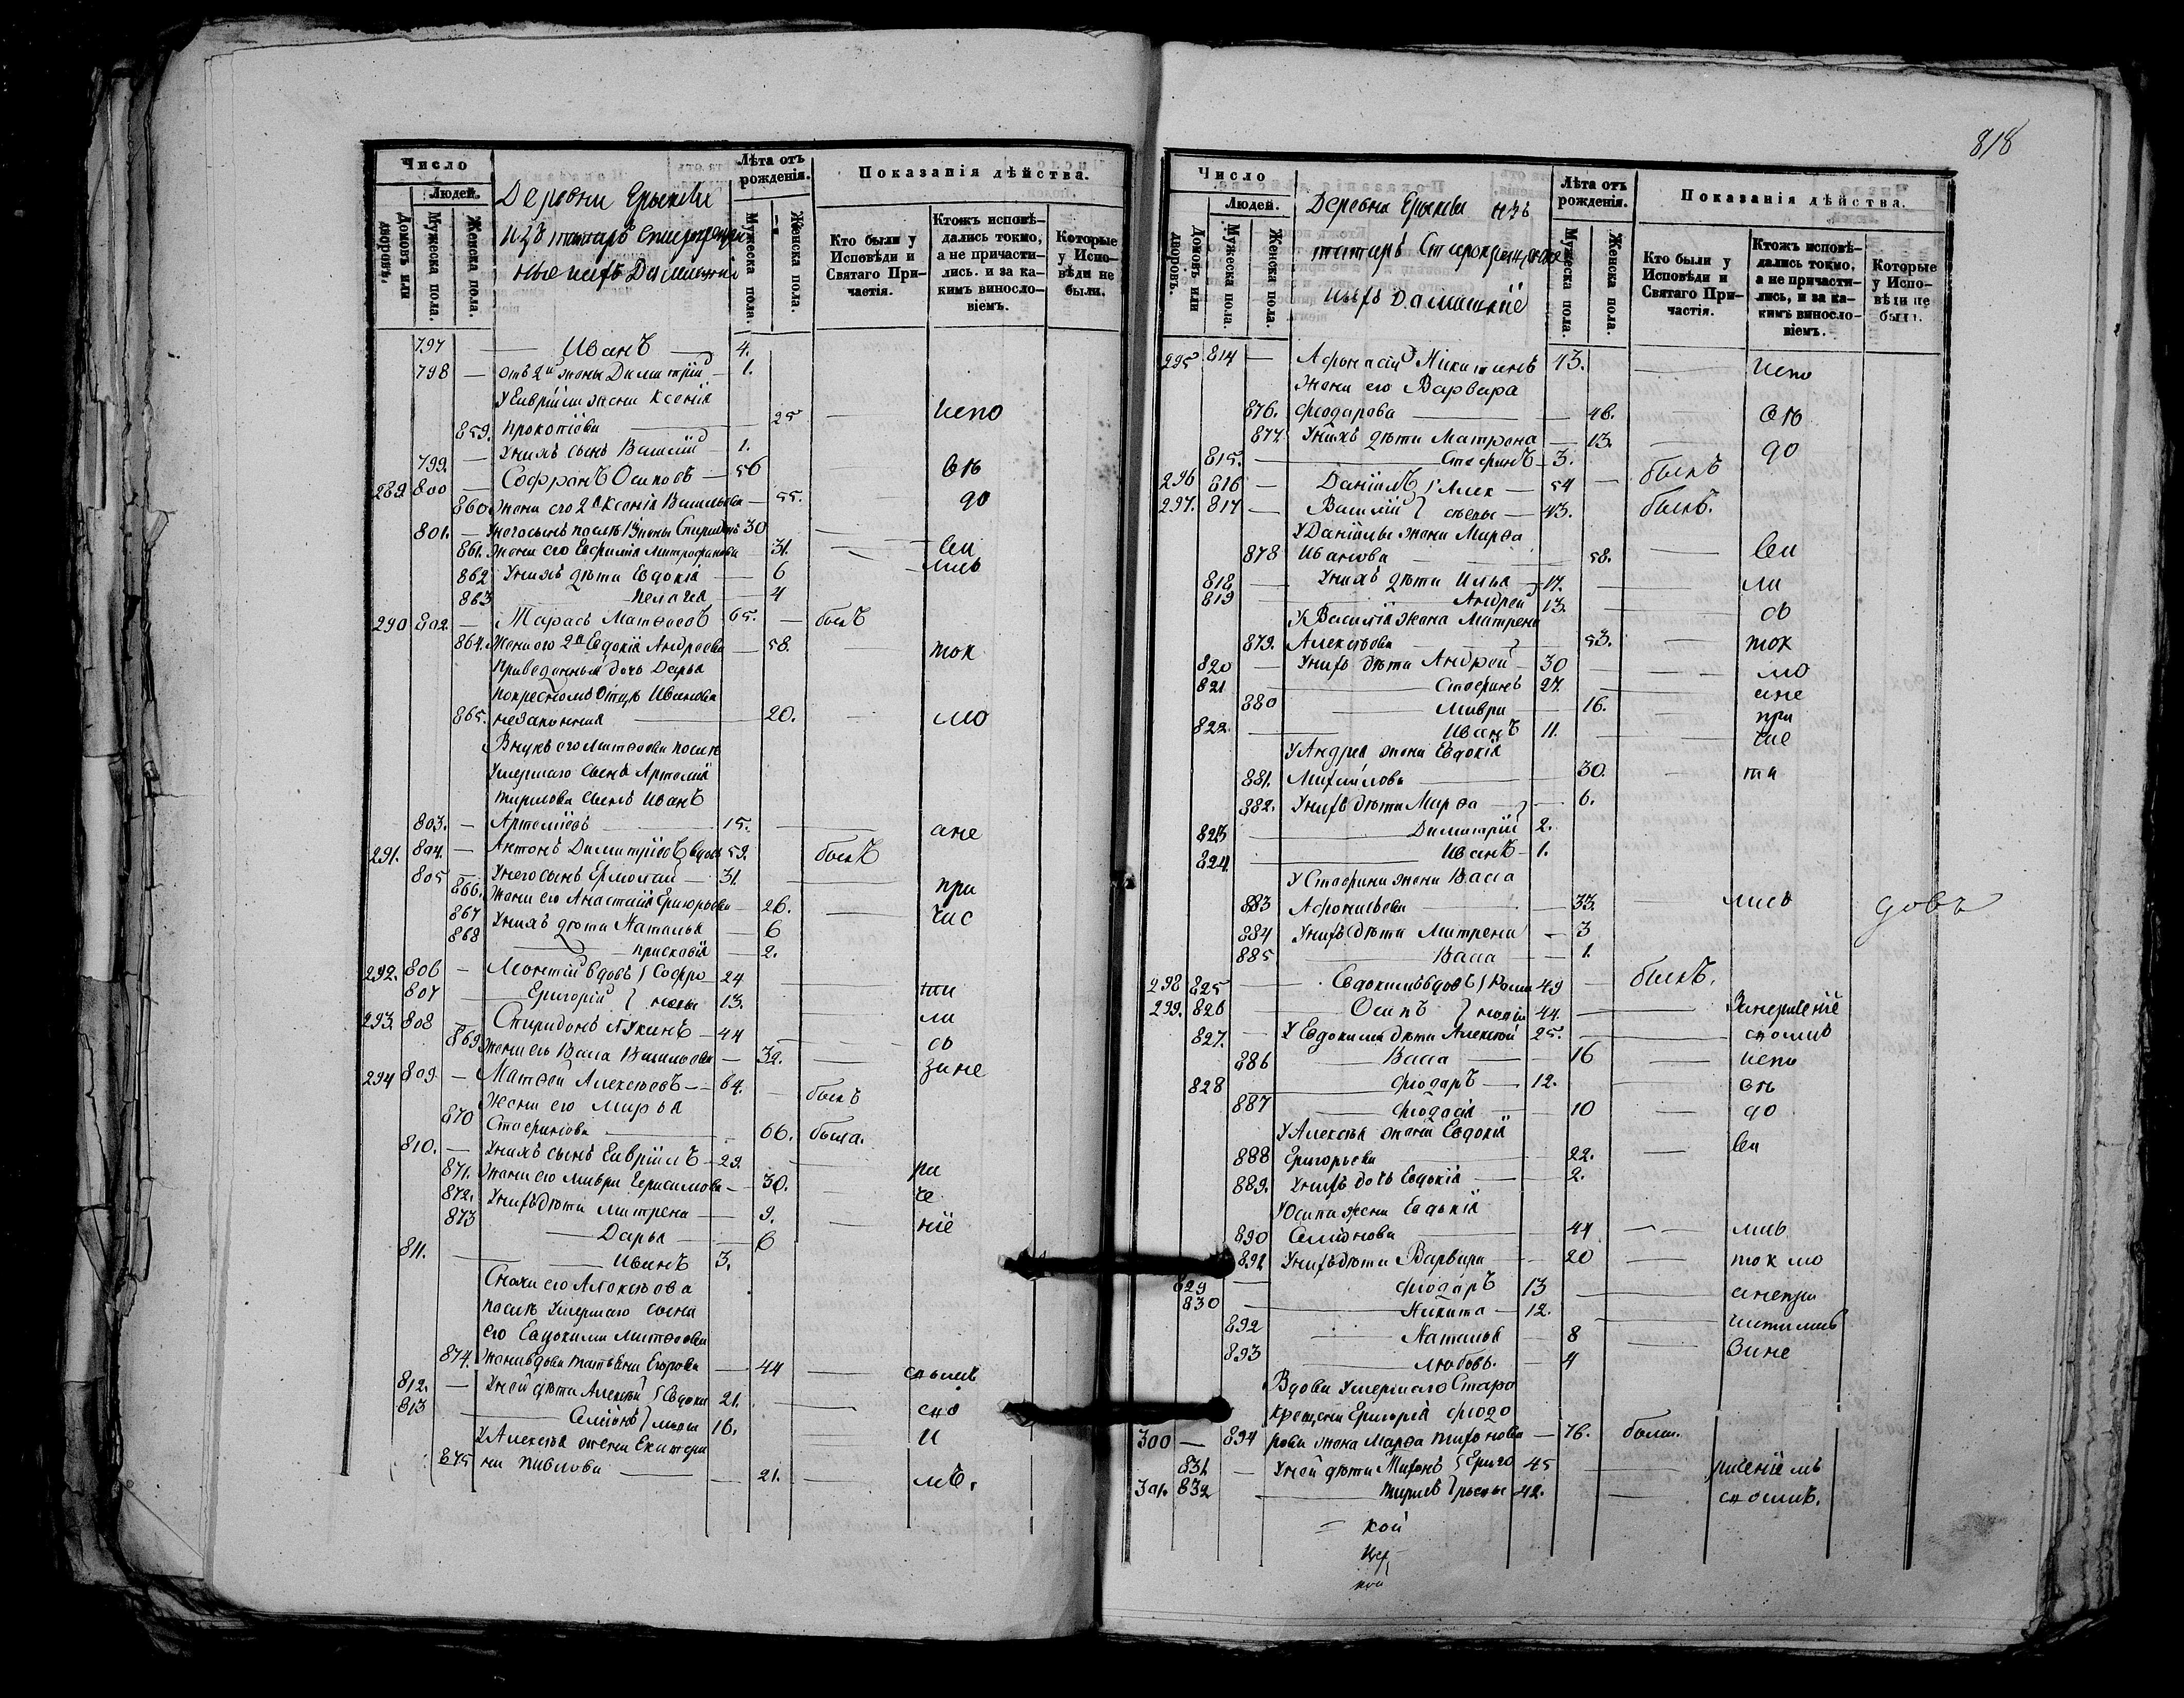 Число
Людей.
Домовъ или дворовъ.
Мужеска пола.
Женска пола.
Деревни Ерыкли
изъ татаръ старокрещен
ные ихъ Домашніи
Лѣта отъ рожденія.
Мужеска пола.
Женска пола.
Показанія дѣйства.
Кто были у Исповѣди и Святаго Причастія.
Ктожъ исповѣдались токмо, а не причастились. и за какимъ винословіемъ.
Которые у Исповѣди не были.
797 — Иванъ — 4.
798 — отъ 2й жены Димитрій — 1.
У Гаврiила жена Ксенія
859. Прокопіева — 25 — испо
799. — У нихъ сынъ Василій — 1.
289 800 — Софронъ Осиповъ — 56 вѣ
860 Жена его 2я Ксенія Васильева — 55. — до
801. — У него сынъ послѣ 1й жены Спиридонъ 30
861. Жена его Евфимія Митрофанова — 31. — ва
862 У нихъ дѣти Евдокія — 6 — лись
863 — Пелагея — 4
290 802. — Тарасъ Матвѣевъ 65. — былъ
864. Жена его 2я Евдокія Андреева — 58. — ток
Приведенный дочь Дарья
по крестномъ Отцѣ Иванова
865. незаконная — 20. — мо
Внукъ его Матвѣева послѣ
Умершаго сына Артемія
Тарасова сынъ Иванъ
803. — Артеміевъ — 15. — ане
291. 804. — Антонъ Димитріевъ вдовъ 59. былъ
805 — У него сынъ Ермолай — 31. — при
866. Жена его Анастасія Григорьева — 26. — час
867 У нихъ дѣти Наталья — 6
868 — Прасковія — 2.
292. 806 — Леонтій вдовъ Софро 24 — ти
807 — Григорій новы 13. — ли
293. 808 — Спиридонъ Лукинъ — 44 — сь
869 Жена его Васса Васильева — 39. — зане
294 809. — Матвѣй Алексѣевъ — 64. — былъ
Жена его Марья
870 Стафинова — 66. была.
810. — У нихъ сынъ Гавріилъ — 29. — ра
871. Жена его Мавра Герасимова — 30. — че
872. У нихъ дѣти Матрена — 9. — ніе
873 — Дарья — 6
811. — Иванъ 3.
Сноха его Алексѣева
послѣ Умершаго сына
его Евдокима Матвѣева
874. Жена вдова Татьяна Егорова — 44
812. — У ней дѣти Алексѣй Евдоки 21.
813 — Семіонъ мовы 16. — и
У Алексѣя жена Екатери
875 на Павлова — 21. — мъ.
818
Число
Людей.
Домовъ или дворовъ.
Мужеска пола.
Женска пола.
Деревни Ерыкли изъ
татаръ Старокрещеные
ихъ Домашніе
Лѣта отъ рожденія.
Мужеска пола.
Женска пола.
Показанія дѣйства.
Кто были у Исповѣди и Святаго Причастія.
Ктожъ исповѣдались токмо, а не причастились, и за какимъ винословіемъ.
Которые у Исповѣди не были.
295 814 — Афонасій Никитинъ 43. — испо
Жена его Варвара
876. Ѳіодорова — 46. — вѣ
877. У нихъ дѣти Матрена — 13. — до
815. — Стафинъ — 3.
296 816 — Даніилъ Алек — 54 — былъ
297. 817 — Василій сѣевы — 43. былъ.
У Даніила жена Марѳа
878 Иванова — 58. — ва
818 — У нихъ дѣти Илья — 17. — ли
819 — Андрей 13. — сь
У Василія жена Матрена
879. Алексѣева — 53. — ток
820 — У нихъ дѣти Андрей — 30 — мо
821 — Стафинъ 27. — ане
880 — Мавра — 16. — при
822. — Иванъ 11. — час
У Андрея жена Евдокія
881. Михайлова — 30. — ти
882. У нихъ дѣти Марѳа — 6.
823 — Димитрій 2.
824. — Иванъ — 1.
У Стафина жена Васса
883 Афонасьева — 33. лись
884 У нихъ дѣти Матрена — 3
885 — Васса — 1.
298 825 — Евдокимъ вдовъ 49 — былъ.
299. 826 — Осипъ 44.
827. — У Евдокима дѣти Алексѣй 25.
886 — Васса — 16 — испо
828 — Ѳіодоръ — 12. — вѣ
887 — Ѳіодосія — 10 — до
У Алексѣя жена Евдокія
888 Григорьева — 22. — ва
889. У нихъ дочь Евдокія — 2.
У Осипа жена Евдокія
890 Семіонова — 44 — лись
891 У нихъ дѣти Варвара — 20 — ток мо
829 — Ѳіодоръ 13 — анепри
830 — Никита — 12. — частились
892 — Наталья — 8
893 — Любовь. — 4
Вдова Умершаго Старо
крещена Григорія Ѳіодо
300 — 894 рова жена Марѳа Тихонова — 76. была.
831 — У ней дѣти Михаилъ Григо 45
301. 832 — рьевы 42.